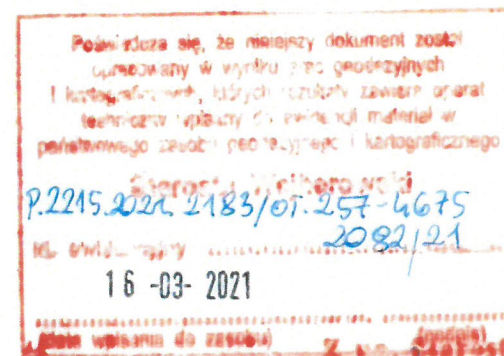 Poświadcza się, że niniejszy dokument został
opracowany w wyniku prac geodezyjnych
i kartograficznych, których rezultaty zawiera operat
techniczny wpisany do ewidencji materiałów
państwowego zasobu geodezyjnego i kartograficznego
Starosta Wejherowski
P.2215.2021.2183/OT.257-4675
2082/21
Nr ewidencyjny
16 -03- 2021
(data wpisania do zasobu) (podpis)